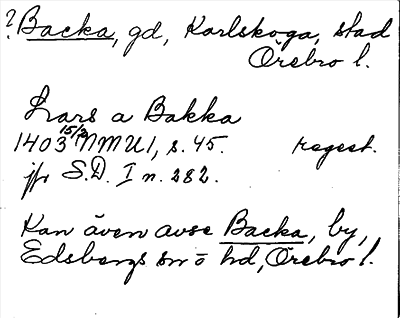 ? Backa, gd, Karlskoga, stad
Örebro l.
Lars a Bakka
1403 15/2 NMU1, s. 45. regest.
jfr S.D. I n. 282.
Kan även avse Backa, by,
Edsbergs sn o hd, Örebro l.